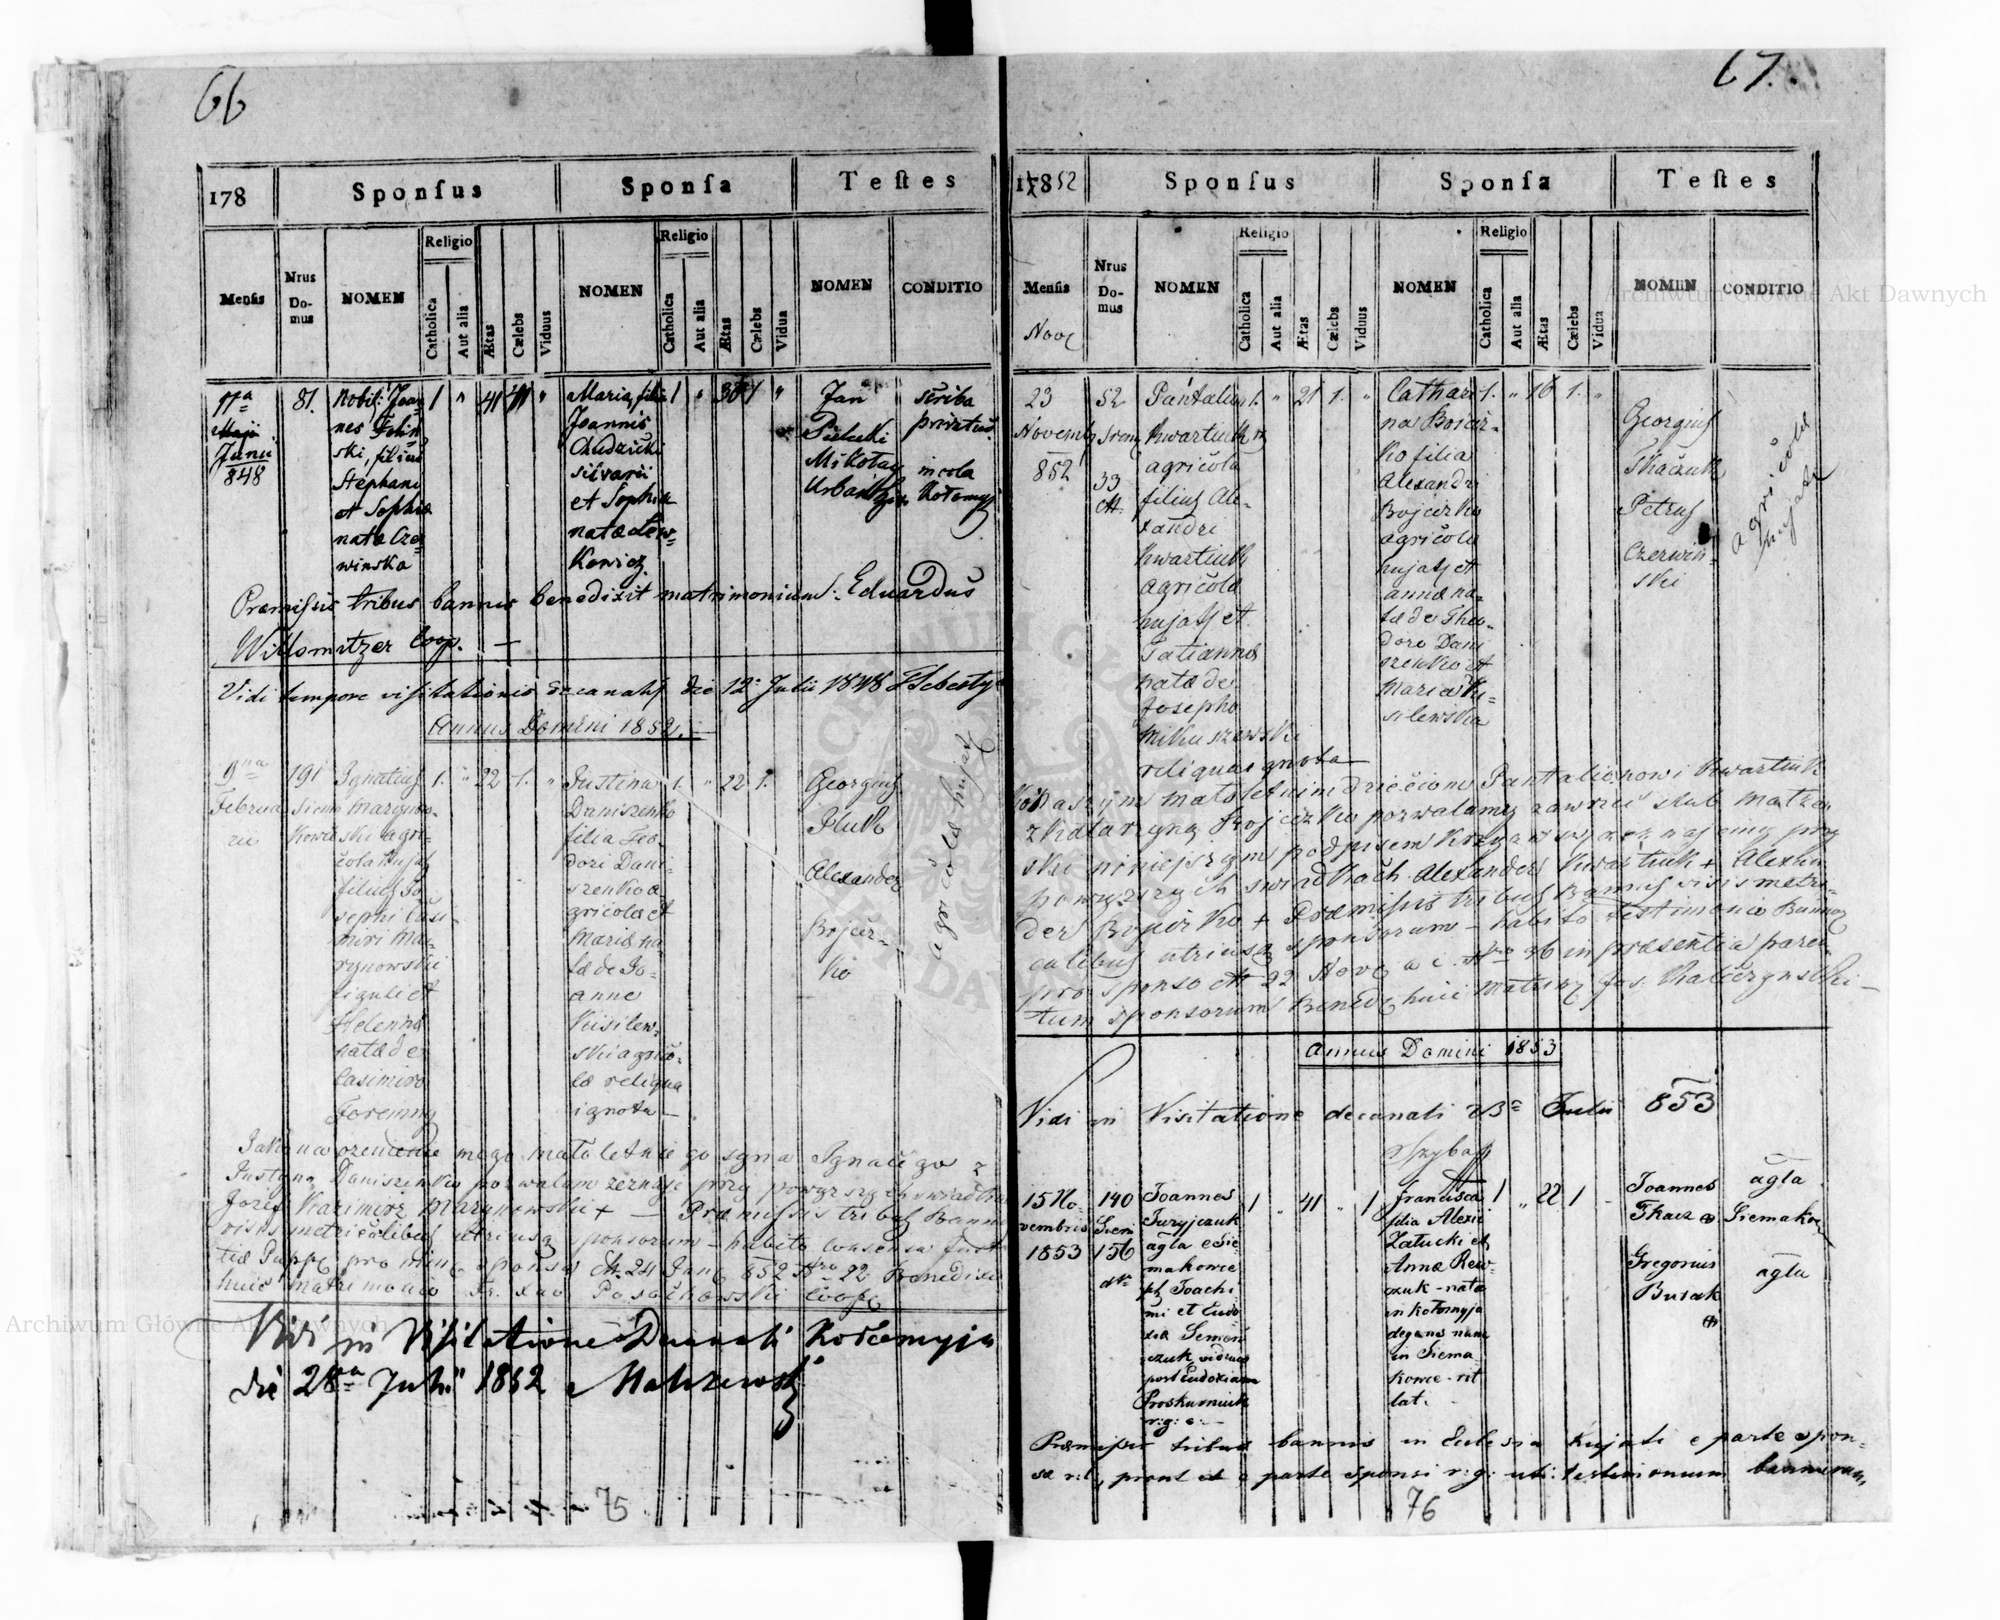 66
178
Sponsus
Sponsa
Testes
Mensis
Nrus Domus
NOMEN
Religio
Catholica
Aut alia
Ætas
Cælebs
Viduus
NOMEN
Religio
Catholica
Aut alia
Ætas
Cælebs
Vidua
NOMEN
CONDITIO
11ª
Maji
Junii
848
81.
Nobil: Joan
nes
ski, filius
Stephani
et Sophia
nata Cze
winska
1 " 41 "
Maria, filia
Joannis
et Sophia
nata Lew=
Kowicz.
1 " 30 1 "
Jan
Mikołay
Urban
scriba
privatus.
incola
Kołomyj
Præmissis tribus bannis benedixit matrimonium: Eduardus
Willomitzer Coop. —
Vidi tempore visitationis decanatus die 12 Julii 1848
Annus Domini 1852.
9na
Februa
rii
191
Siem
Kowce
Ignatius
Maryno
ski agri
cola hujas
filius Jo
sephi Casi-
miri Ma-
rynowski
figuli et
Helenna
nata de
Casimiro
Foremny
1. " 22 1. "
Justina
Daniszenko
filia Teo
dori Dani
szenko a
gricola et
Maria na
ta de Jo-
anne
Wisilew-
ski agrico-
la reliqua
ignota —
1. " 22 1.
Georgius
Hluk
Alexander
Bojecz-
Ko
agricola hujas
Jako na ozenienie mego małoletniego syna Ignacego z
Justyną Daniszenko pozwalam zeznaję przy powyrszych swiadka
Józef Kazimirz Marynowski + — Præmissis tribus Bannis
visis metricalibus utriusq sponsorum — habito consensu Just
tia Pupp pro min sponsa dt. 24 Jan 852 Nro 22 Benedixi
huic matrimonio Fr. Xav Coop
Vidi in Visitatione Decanali Kołomyja
die 28ª Julii 1852
75
67.
17852
Sponsus
Sponsa
Testes
Mensis
Nov
Nrus Domus
NOMEN
Religio
Catholica
Aut alia
Ætas
Cælebs
Viduus
NOMEN
Religio
Catholica
Aut alia
Ætas
Cælebs
Vidua
NOMEN
CONDITIO
23
Novemb
852
52
33
Pantalius
Kwartiuk
agricola
filius Ale-
xandri
Kwartiuk
agricola
hujas et
Tatianna
nata de
Josepho
Mikuszewski
reliqua ignota
1. " 21 1. "
Cathari
na Bojecz-
ko filia
Alexandri
Bojeczko
agricola
hujas et
anna na-
ta de Theo-
doro Dani
szenko et
Maria Wi-
silewska
1. " 16 1. "
Georgius
Tkaczuk
Petrus
Czerwin-
ski
agricola
hujas
naszym małoletnim dzieciom Pantalionowi Kwartiuk
z Katarzyną Bojeczko pozwalamy zawrzeć slub Małzen
ski niniejszym podpisem przy
powyzszych swiadkach Alexander Kwartiuk + Alexan
der Bojeczko + Præmissis tribus Bannis visis metri-
calibus utriusq sponsorum — habito testimonio Bannor
pro sponso dt 22 Nov a c. Nro 96 in præsentia paren
tum sponsorum Bened huic Matrim Jos.
Annus Domini 1853
Vidi in Visitatione decanali Julii 853
15 No
vembris
1853
140
Siem
156
Joannes
Juryjczuk
agla e Sie
makowce
fil Joachi
mi et Eudo
xia Semen
czuk viduus
post Eudoxiam
Proskurniuk
r: g: c: —
1 " 41 " 1
Francisca
filia Alexii
Załucki et
Anna Rew-
czuk - nata
in Kołomyja
degans nunc
in Siema
kowce - rit
lat.
1 " 22 1 -
Joannes
Tkacz +
Gregorius
Burak
+
agla
Siemakow
agla
Præmissis tribus bannis in Eclesia hujati e parte spon-
sæ r: l:, prout et e parte sponsi r: g: uti testimonium bannorum,
76
Archiwum Główne Akt Dawnych
Archiwum Główne Akt Dawnych